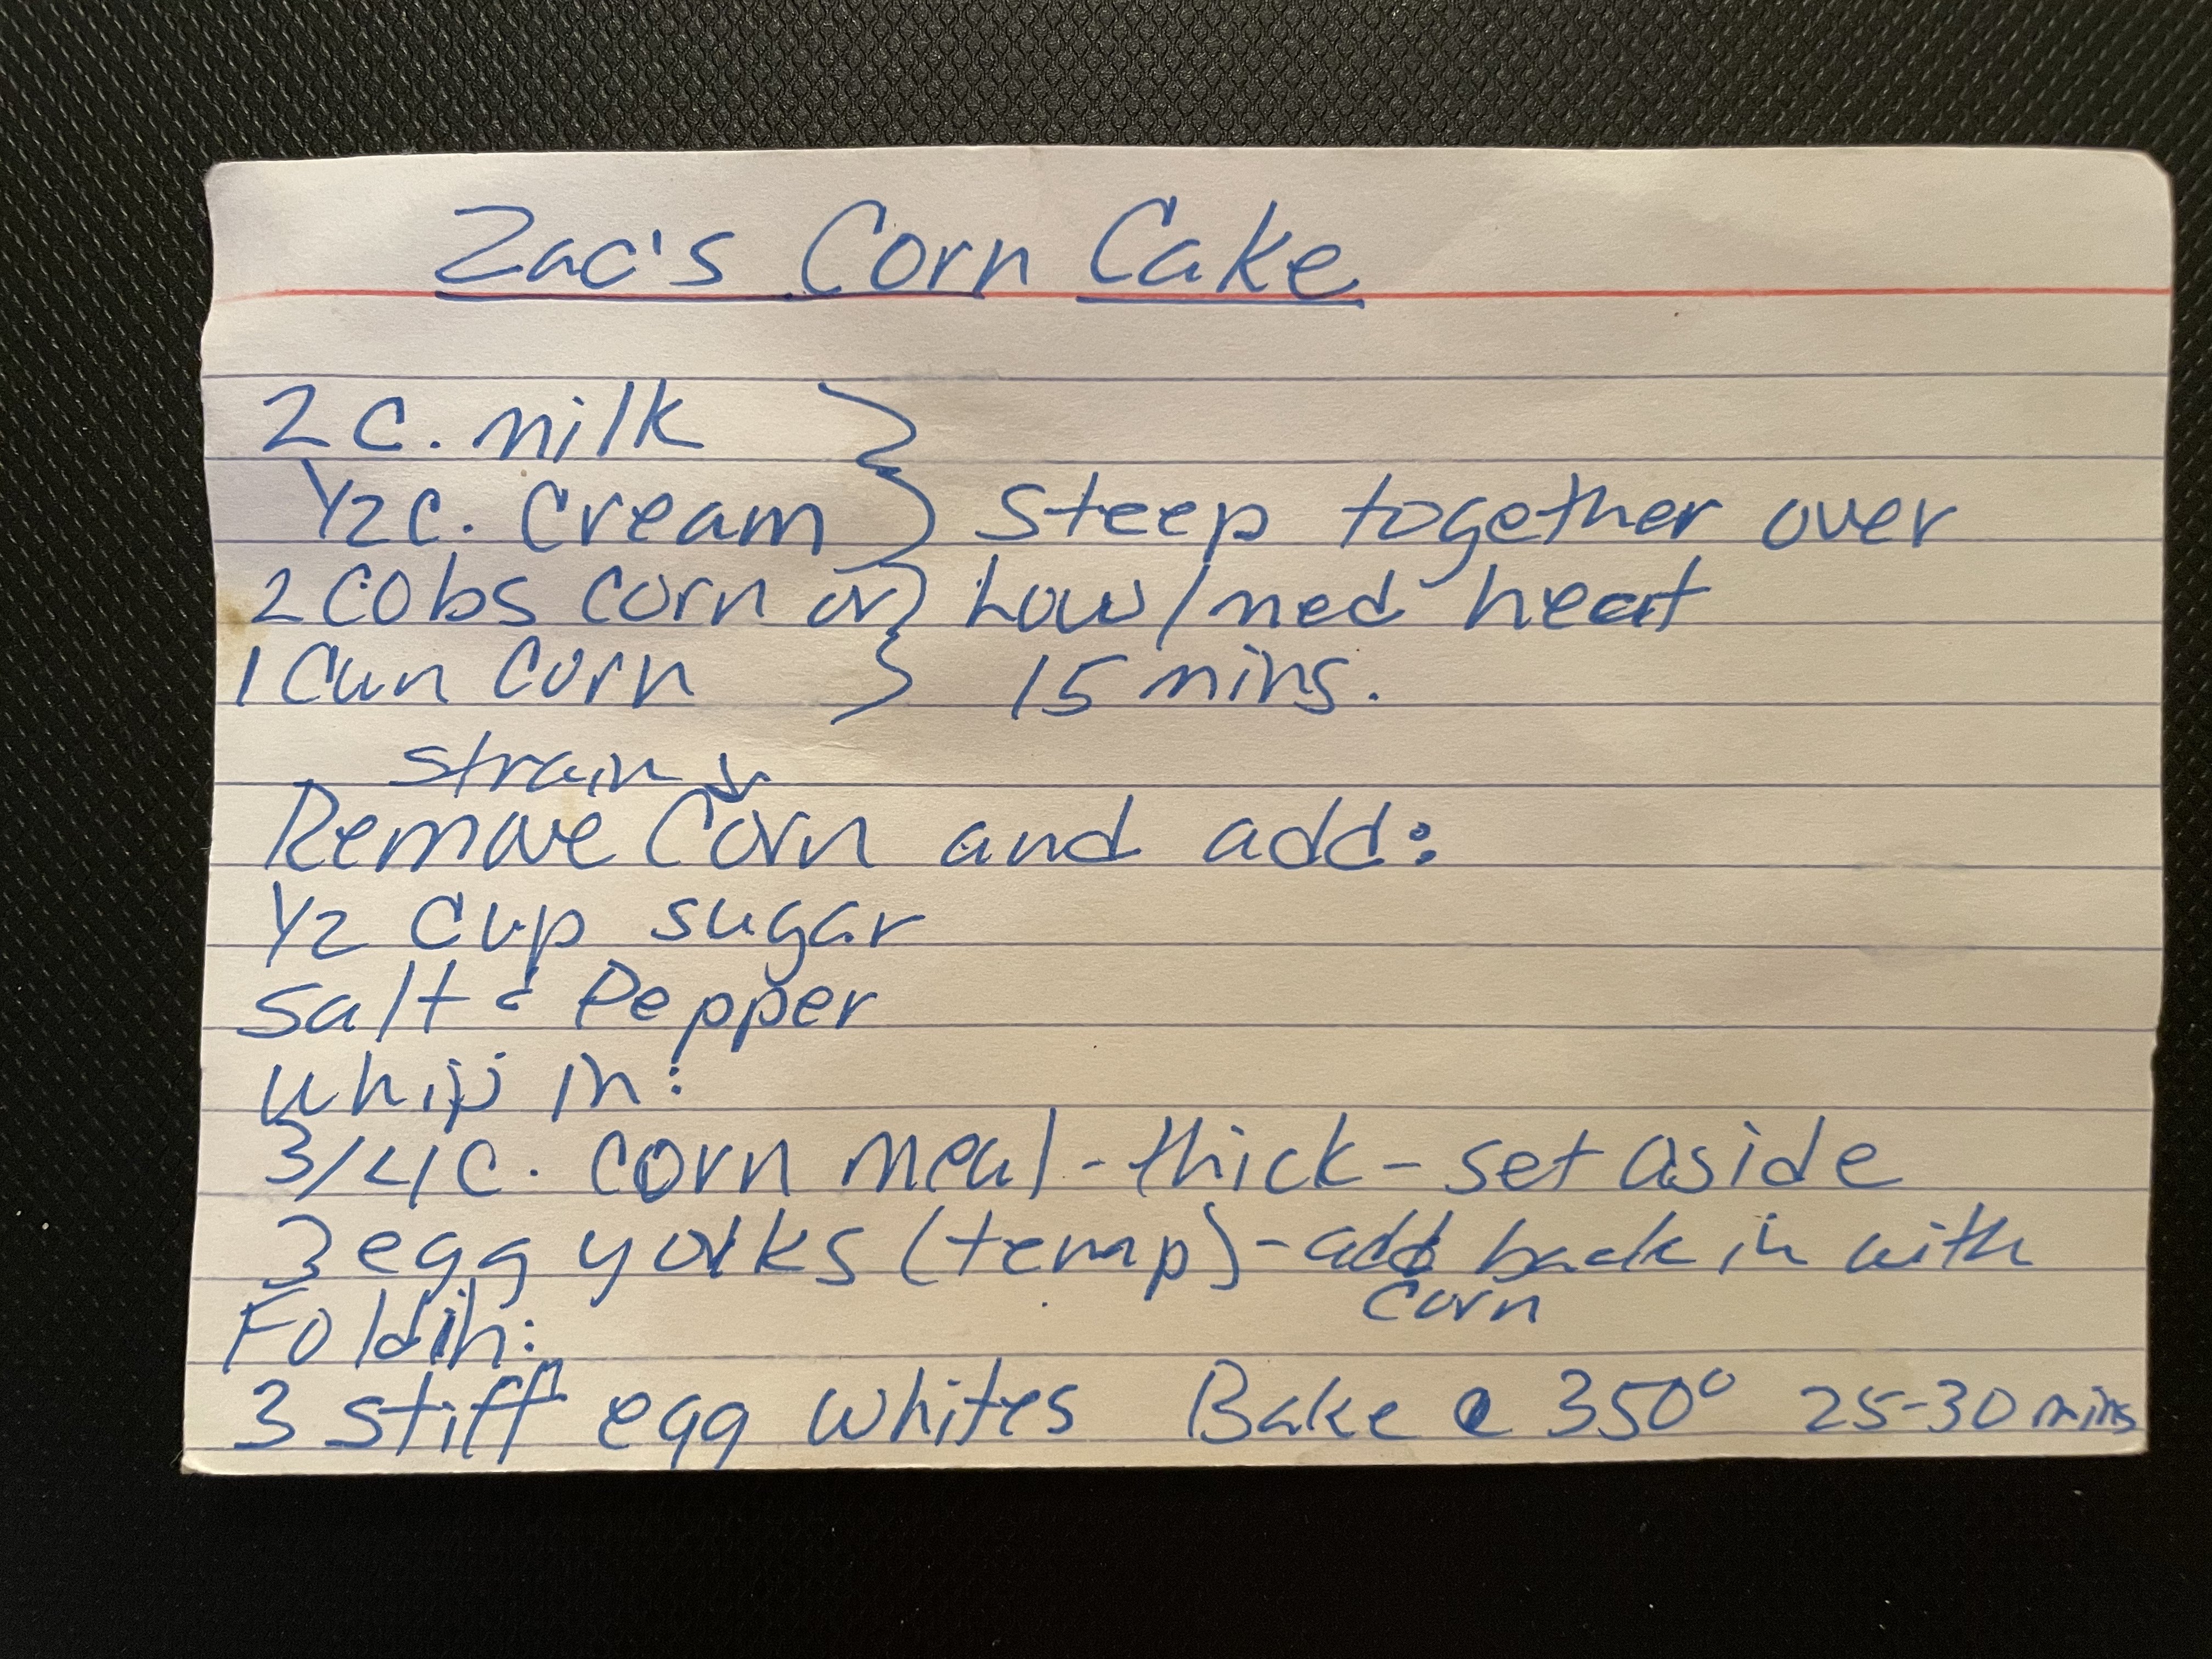 Zac's Corn Cake
2 C. milk
1/2 C. Cream } Steep together over
2 Cobs corn or } Low/med heat
1 Can Corn } 15 mins.
strain
Remove Corn and add:
1/2 Cup sugar
Salt & Pepper
whip in:
3/4 C. corn meal - thick - set aside
3 egg yolks (temp) - add back in with
corn
Fold in:
3 stiff egg whites Bake @ 350° 25-30 mins